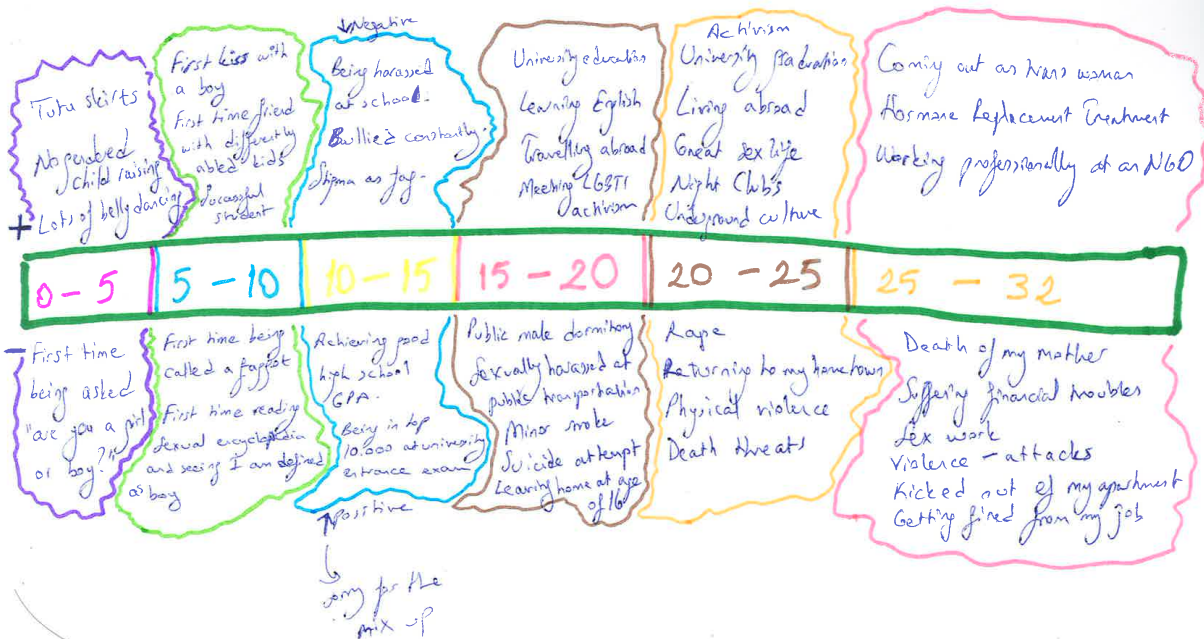 Tutu skirts
No gendered
child raising
Lots of belly dancing
+
First kiss with
a boy
First time friend
with differently
abled kids
Successful
student
Negative
Being harassed
at school.
Bullied constantly.
Stigma as fag.
University education
Learning English
Travelling abroad
Meeting LGBTI
activism
Activism
University graduation
Living abroad
Great sex life
Night Club's
Underground culture
Coming out as trans woman
Hormone Replacement Treatment
Working professionally at an NGO
0 - 5
5 - 10
10 - 15
15 - 20
20 - 25
25 - 32
-
First time
being asked
"are you a girl
or boy?"
First time being
called a faggot
First time reading
sexual encyclopedia
and seeing I am defined
as boy
Achieving good
high school
GPA.
Being in top
10.000 at university
entrance exam
Positive
sorry for the
mix up
Public male dormitory
Sexually harassed at
public transportation
Minor smoke
Suicide attempt
Leaving home at age
of 16
Rape
Returning to my hometown
Physical violence
Death threats
Death of my mother
Suffering financial troubles
Sex work
Violence - attacks
Kicked out of my apartment
Getting fired from my job